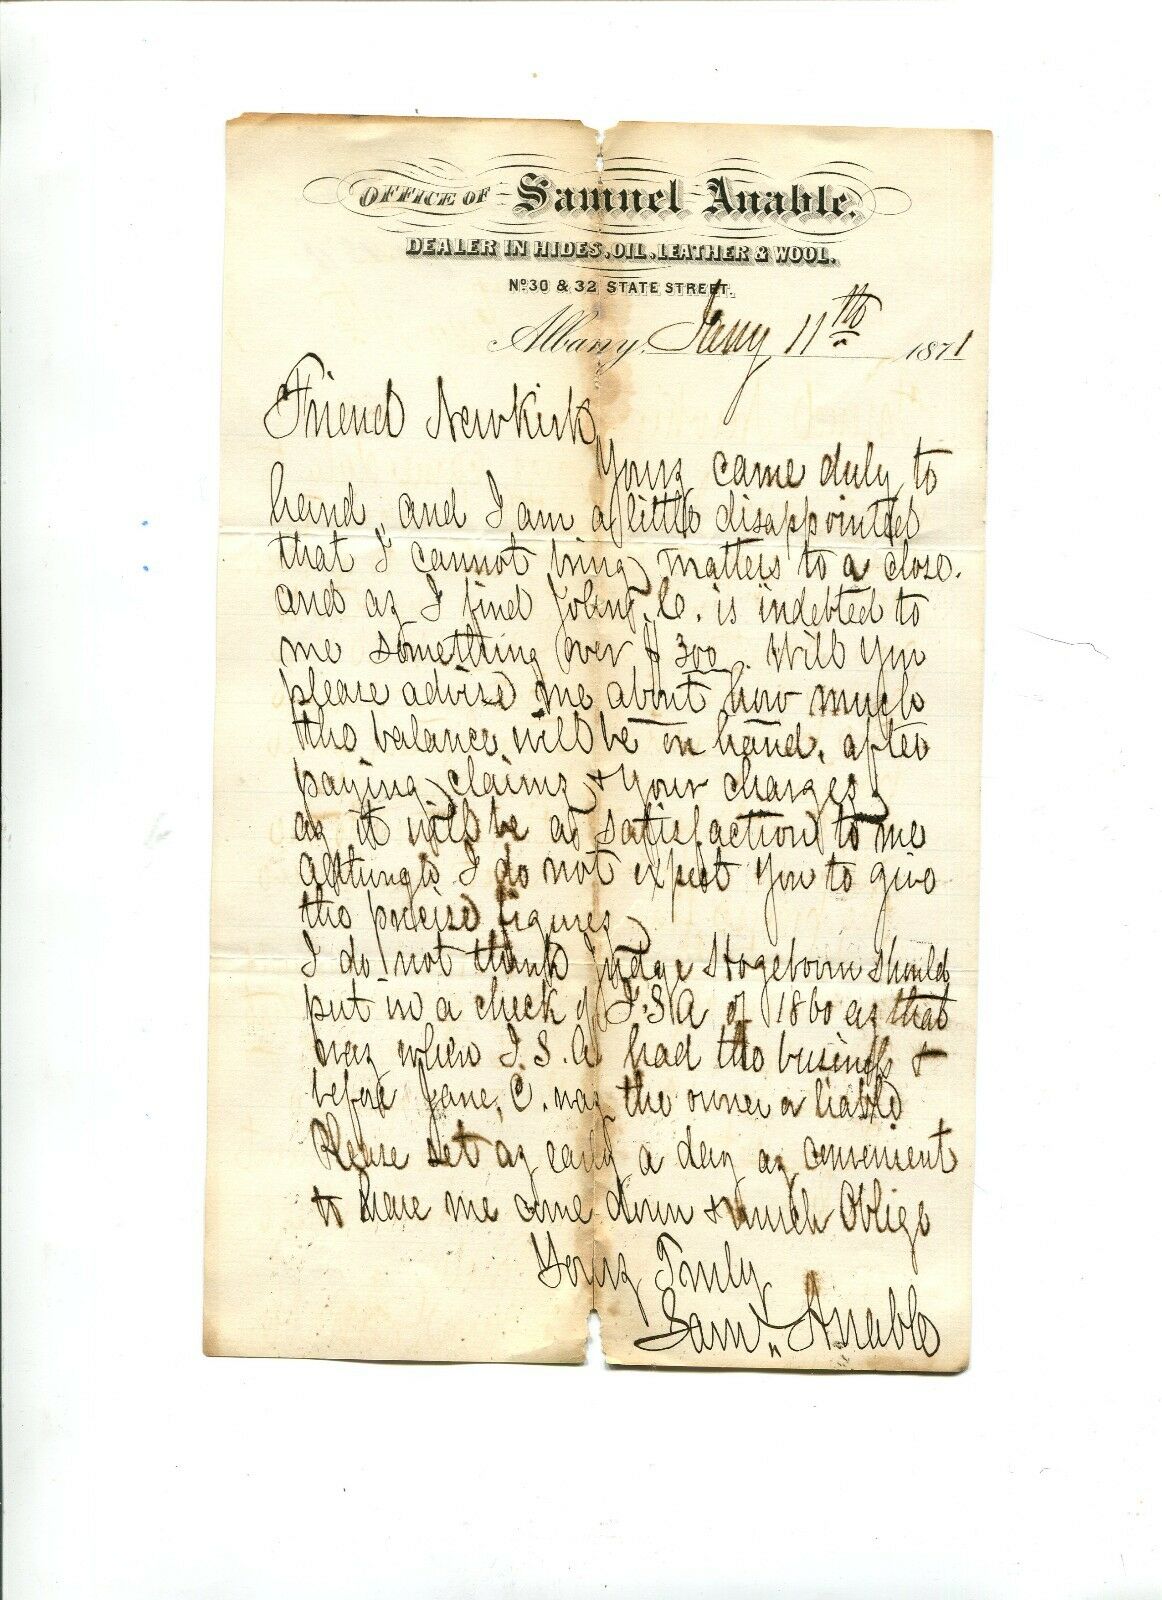 OFFICE OF Samuel Anable.
DEALER IN HIDES, OIL, LEATHER & WOOL.
No. 30 & 32 STATE STREET.
Albany, Jany 11th 1871
Friend Newkirk
Yours came duly to
hand, and I am a little disappointed
that I cannot bring matters to a close.
and as I find John. C. is indebted to
me something over $300. Will you
please advise me about how much
the balance will be on hand, after
paying claims & your charges,
as it will be a satisfaction to me
although I do not expect you to give
the precise figures
I do not think Judge Hogeboom should
put in a check of J. S. A of 1860 as that
was when J. S. A had the business &
before Jane. C. was the owner or liable
Please set as early a day as convenient
to have me come down & much Oblige
Yours Truly
Saml. Anable